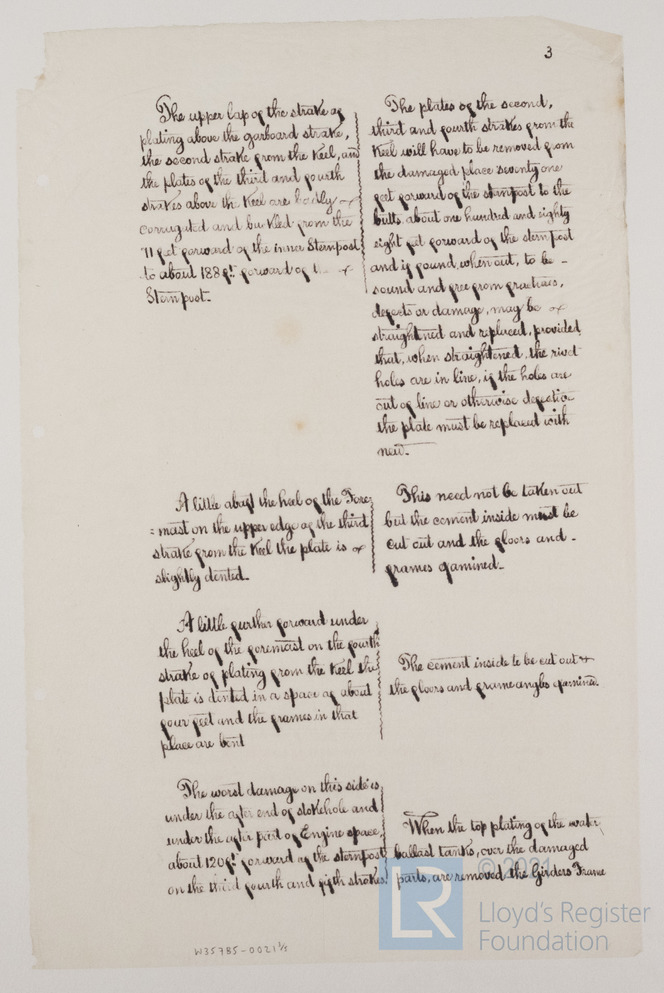 3
The upper lap of the strake of
plating above the garboard strake,
the second strake from the Keel, and
the plates of the third and fourth
strakes above the Keel are badly
corrugated and buckled from the
71 feet forward of the inner Sternpost
to about 188 ft. forward of
Sternpost.
The plates of the second,
third and fourth strakes from the
Keel will have to be removed from
the damaged place seventy one
feet forward of the sternpost to the
butts about one hundred and eighty
eight feet forward of the sternpost
and if found, when out, to be -
sound and free from fractures,
defects or damage, may be
straightned and replaced, provided
that, when straightened, the rivet
holes are in line, if the holes are
out of line or otherwise defective
the plate must be replaced with
new.
A little abaft the heel of the Fore
=mast on the upper edge of the third
strake from the Keel the plate is
slightly dented.
This need not be taken out
but the cement inside must be
cut out and the floors and -
frames examined.
A little further forward under
the heel of the foremast on the fourth
strake of plating from the Keel the
plate is dented in a space of about
four feet and the frames in that
place are bent
The cement inside to be cut out +
the floors and frame angles examined.
The worst damage on this side is
under the after end of stokehole and
under the after part of Engine space,
about 120 ft. forward of the sternpost
on the third fourth and fifth strakes.
When the top plating of the water
ballast tanks, over the damaged
parts, are removed the Girders Frame
W35785-0021 1/3
© 2021
LR
Lloyd's Register
Foundation